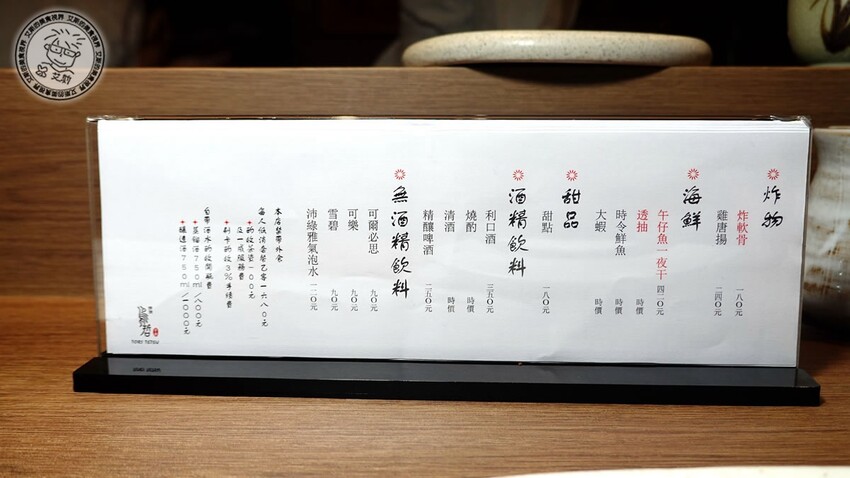 炸物
炸軟骨 一八〇元
雞唐揚 二四〇元
海鮮
午仔魚一夜干 四二〇元
透抽 時價
時令鮮魚 時價
大蝦 時價
甜品
甜點 一八〇元
酒精飲料
利口酒 三五〇元
燒酌 時價
清酒 時價
精釀啤酒 二五〇元
無酒精飲料
可爾必思 九〇元
可樂 九〇元
雪碧 九〇元
沛綠雅氣泡水 一二〇元
本店禁帶外食
每人低消套餐乙客一六八〇元
酌收茶資一〇〇元
及一成服務費
刷卡酌收3%手續費
自帶酒水酌收開瓶費
蒸餾酒750ml/八〇〇元
釀造酒750ml/一〇〇〇元
艾斯的美食視界
艾斯